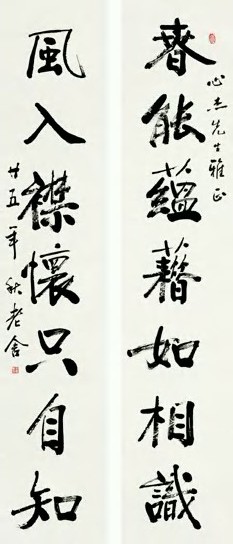 春能蘊藉如相識
心杰先生雅正
風入襟懷只自知
廿五年秋老舍